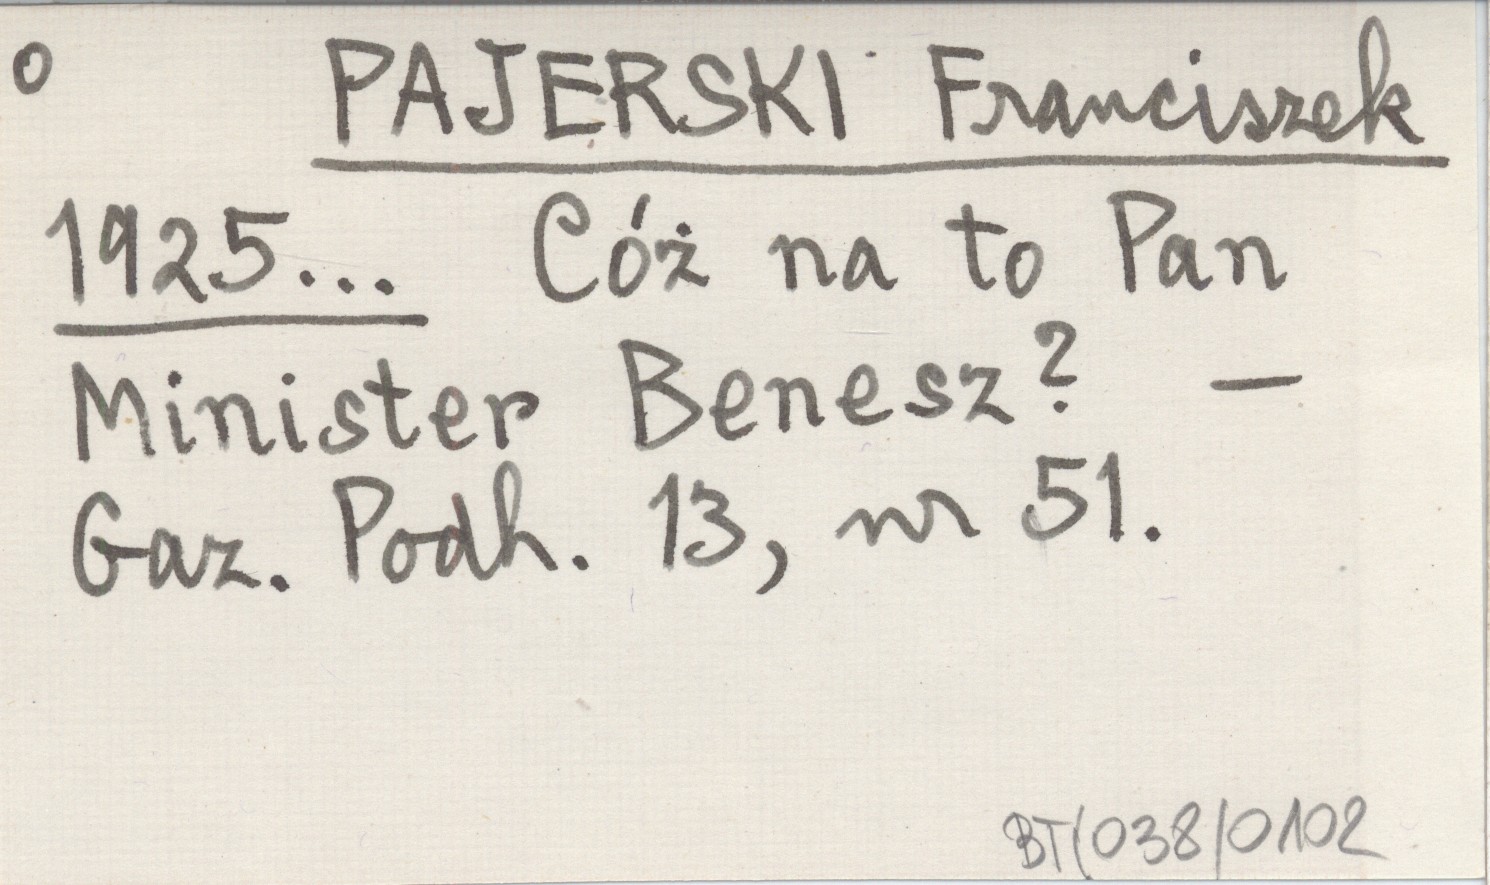 o PAJERSKI Franciszek
1925... Cóż na to Pan
Minister Benesz? —
Gaz. Podh. 13, nr 51.
BT/038/0102